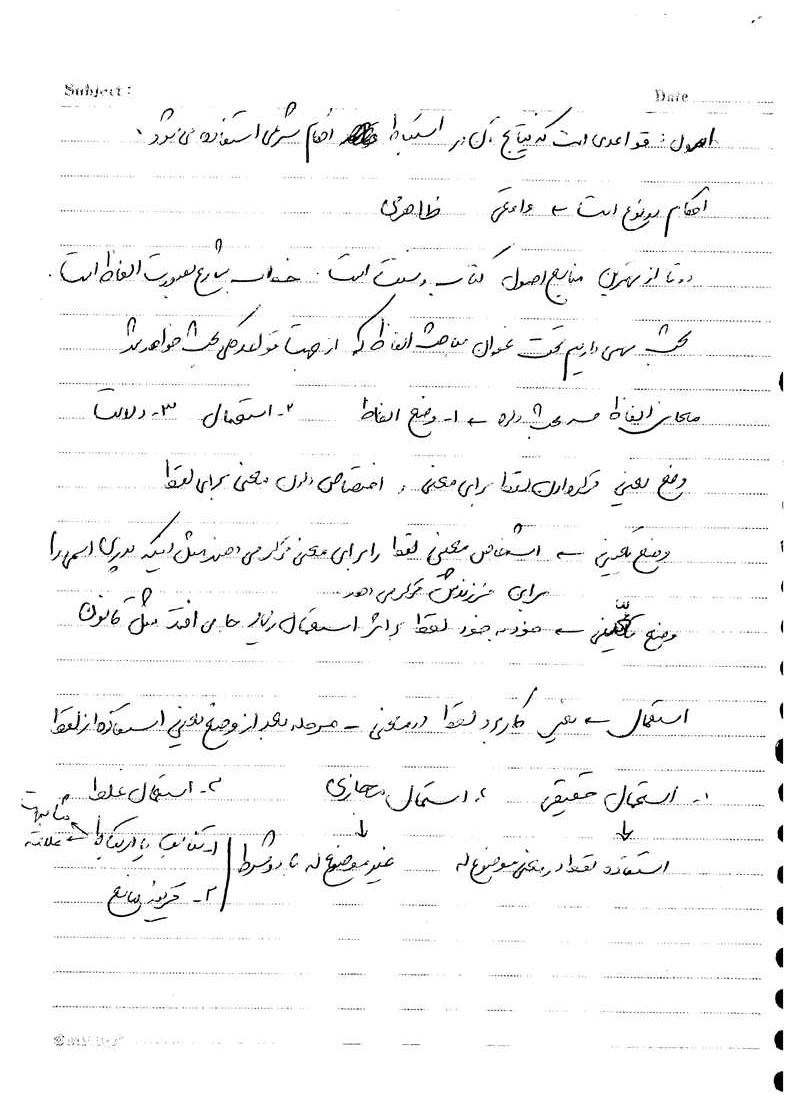 Subject:
Date
اصول: قواعدی است که نتایج آن در استنباط احکام شرعی استفاده می شود.
احکام دو نوع است ← واقعی ظاهری
دو تا از مهترین منابع اصول کتاب و سنت است. خطاب شارع بصورت الفاظ است.
بحث مهمی داریم تحت عنوان مباحث الفاظ که از جهت قواعد کلی بحث خواهد شد
مباحث الفاظ سه بحث دارد ← ۱- وضع الفاظ ۲- استعمال ۳- دلالت
وضع یعنی قرار دادن لفظ برای معنی و اختصاص دادن معنی برای لفظ
وضع تعیینی ← اشخاص معینی لفظ را برای معنی قرار می دهند مثل اینکه پدری اسمی را
برای فرزندش قرار می دهد.
وضع تعیّنی ← خود به خود لفظ بر اثر استعمال زیاد جا می افتد مثل قانون
استعمال ← یعنی کاربرد لفظ در معنی - مرحله بعد از وضع یعنی استفاده از لفظ
۱- استعمال حقیقی ۲- استعمال مجازی ۳- استعمال غلط
↓ استفاده لفظ در معنی موضوع له
↓ غیر موضوع له با دو شرط
۱- تناسب یا ارتباط ← علاقه مشابهت
۲- قرینه مانع